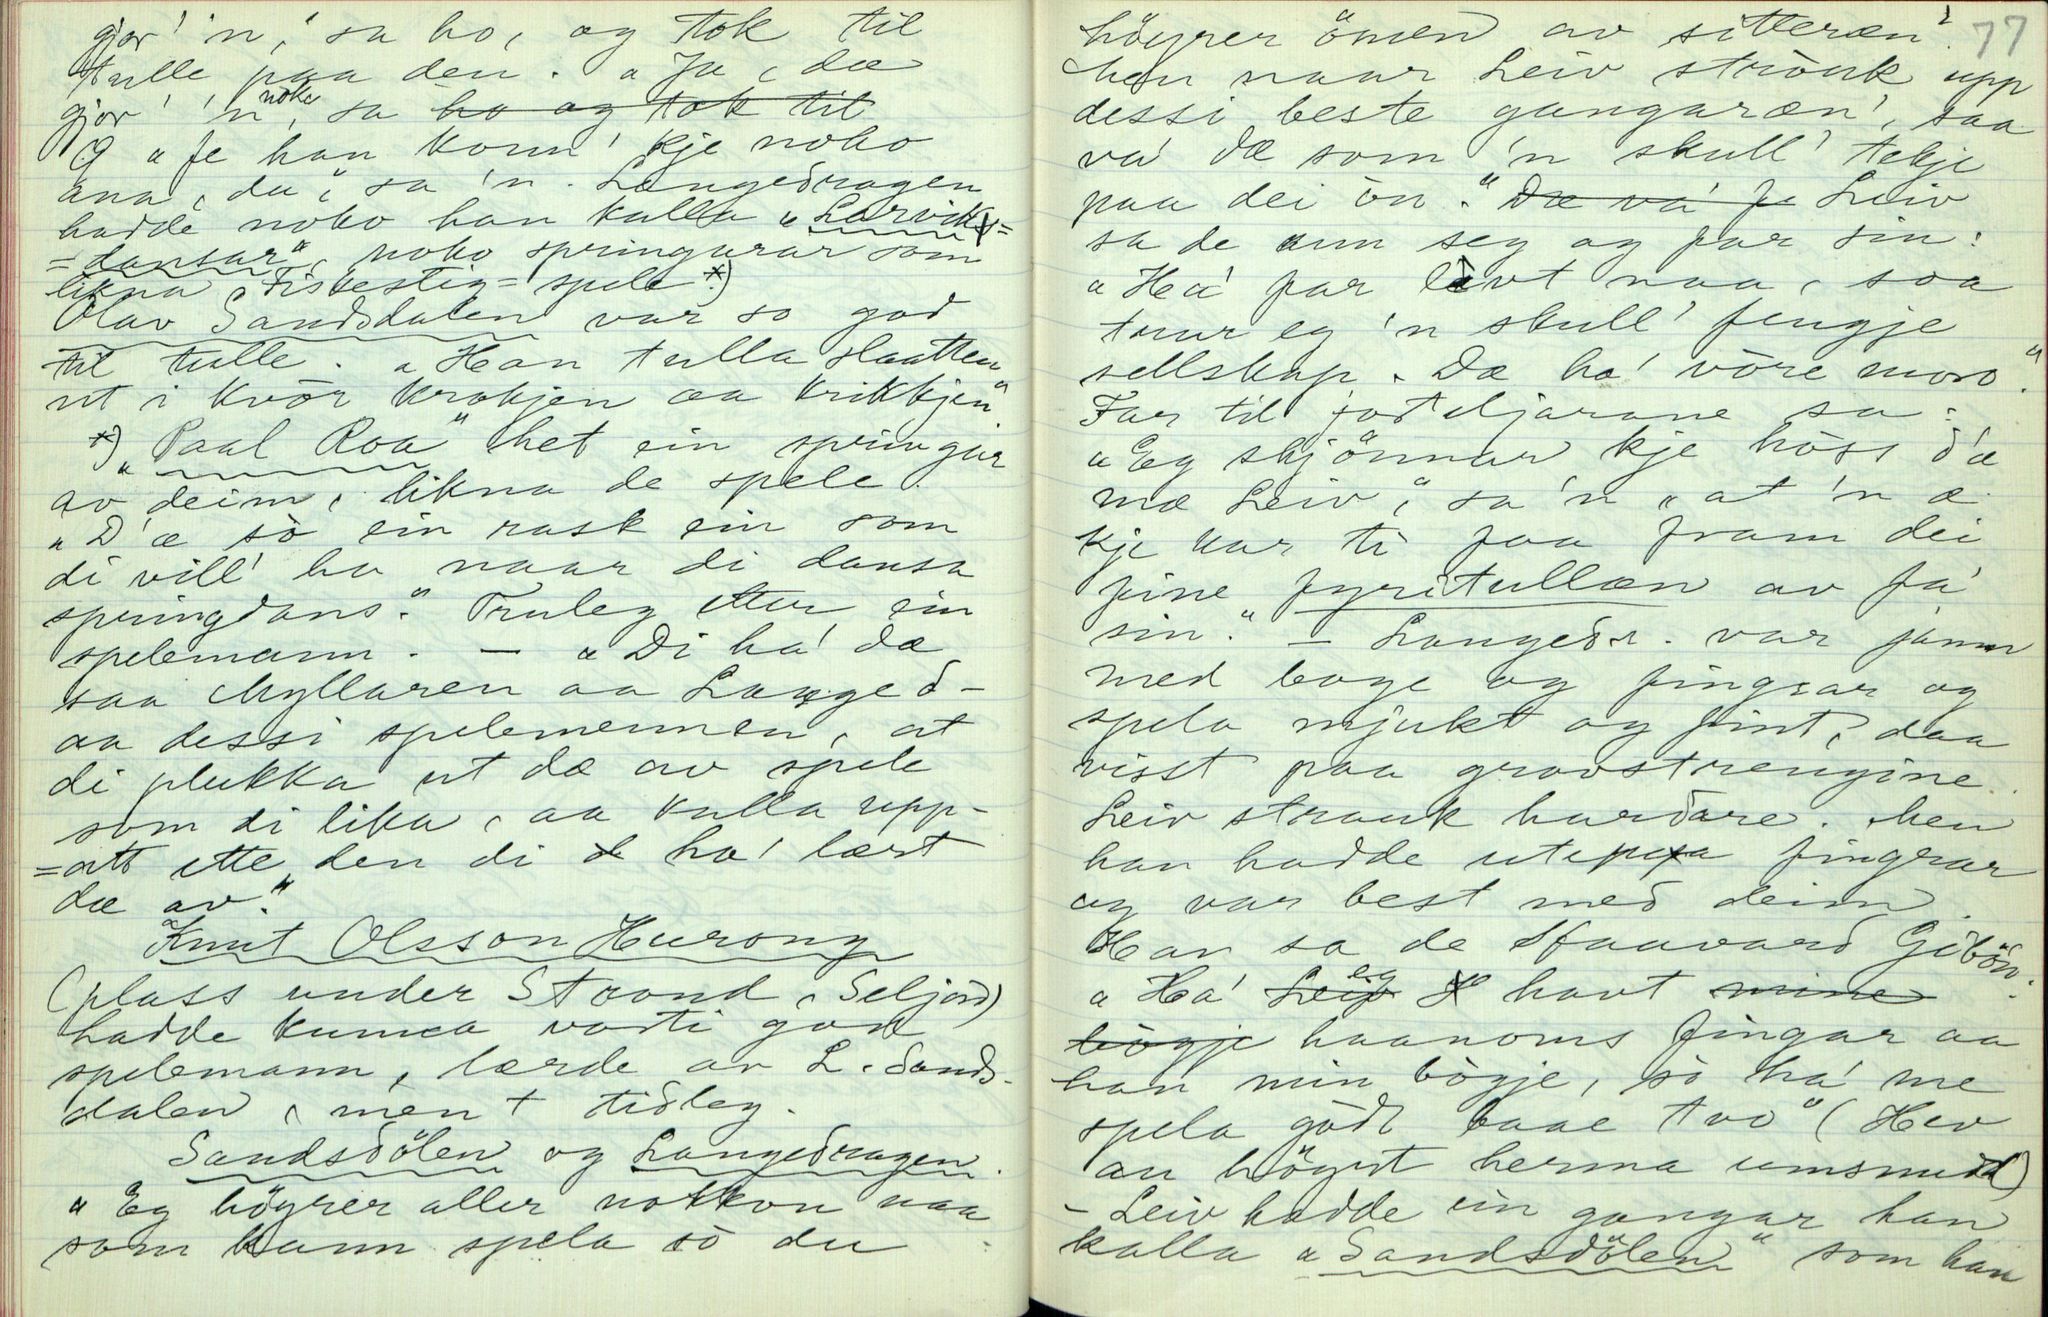 gjor' 'n," sa ho, og tok til
tulle paa den. "Ja, dæ
gjor' 'n nok", sa ho og tok til
O "Je han konn' kje noko
ana, da", sa 'n. Langedragen
hadde noko han kalla "Larviks=
=dansar", noko springarar som
likna Fiskestig=spele *)
Olav Sandsdalen var so god
til tulle. "Han tulla slaatten
ut i kvòr krokjen aa krikkjen"
*) "Paal Roa" het ein springar
av deim, likna de spele.
"D'æ sò ein rask ein som
di vill' ha naar di dansa
springdans." Truleg etter ein
spelemann. — "Di ha' dæ
saa Myllaren aa Langed-
aa dessi spelemennen, at
di plukka ut dæ av spele
som di lika, aa kalla upp-
=att ette den di ha' lært
dæ av."
Knut Olsson Hurong
(plass under Strond, Seljord)
hadde kunna vorti god
spelemann, lærde av L. Sands-
dalen, men + tidleg.
Sandsdölen og Langedragen.
"Eg höyrer aller nokkon naa
som kann spela sò du
77
höyrer ömen av sitteren?
hen naar Leiv strònk upp
dessi beste gangaræn', saa
va' dæ som 'n skull' tekje
paa dei òn." Dæ va' fe Leiv
sa de um seg og far sin:
"Ha' far livt naa, soa
trur eg 'n skull' fengje
sellskap. Dæ ha' vöre moro."
Far til jordeljarane sa:
"Eg skjönnar kje hòss d'æ
mæ Leiv", sa 'n, "at 'n æ
kje kar ti faa fram dei
fine fyritullæn av fa'
sin." — Langedr. var jamn
med boge og fingrar og
spela mjukt og fint, daa
visst paa grovstrengine.
Leiv strauk hardare. Men
han hadde utipaa fingrar
og var best med deim.
Han sa de Haavard Gibön:
"Ha' eg havt mine
bògje haanoms fingar aa
han min bògje, sò ha' me
spela gòdt baae tvo" (Hev
au höyrt herma umsnudd)
- Leiv hadde ein gangar han
kalla "Sandsdölen" som han